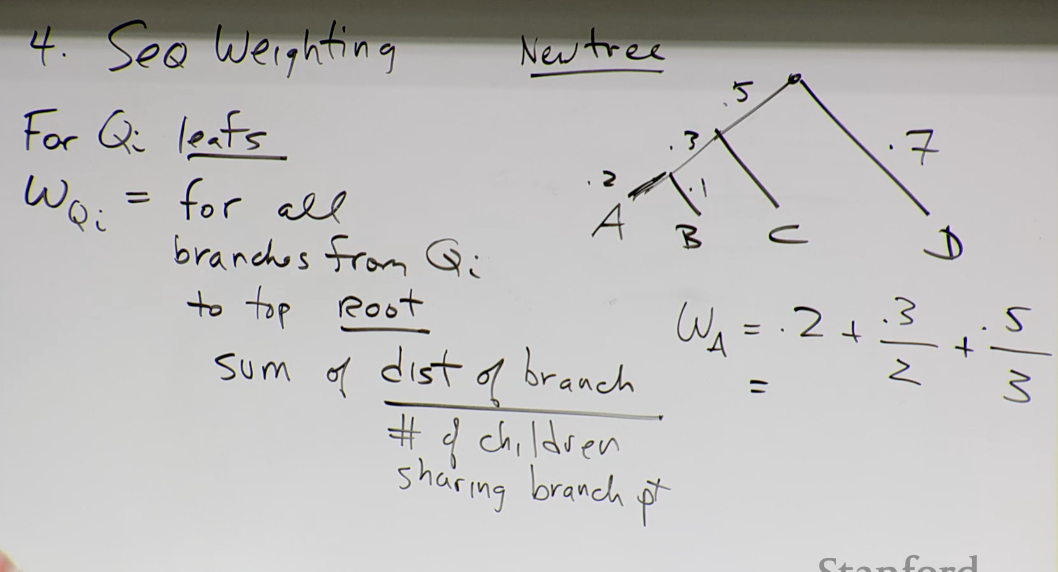 4. Seq Weighting
For Qi leafs
WQi = for all
branches from Qi
to top Root
sum of dist of branch
# of children
sharing branch pt
New tree
.5
.3
.7
.2
.1
A
B
C
D
WA = .2 + .3/2 + .5/3
=
Stanford